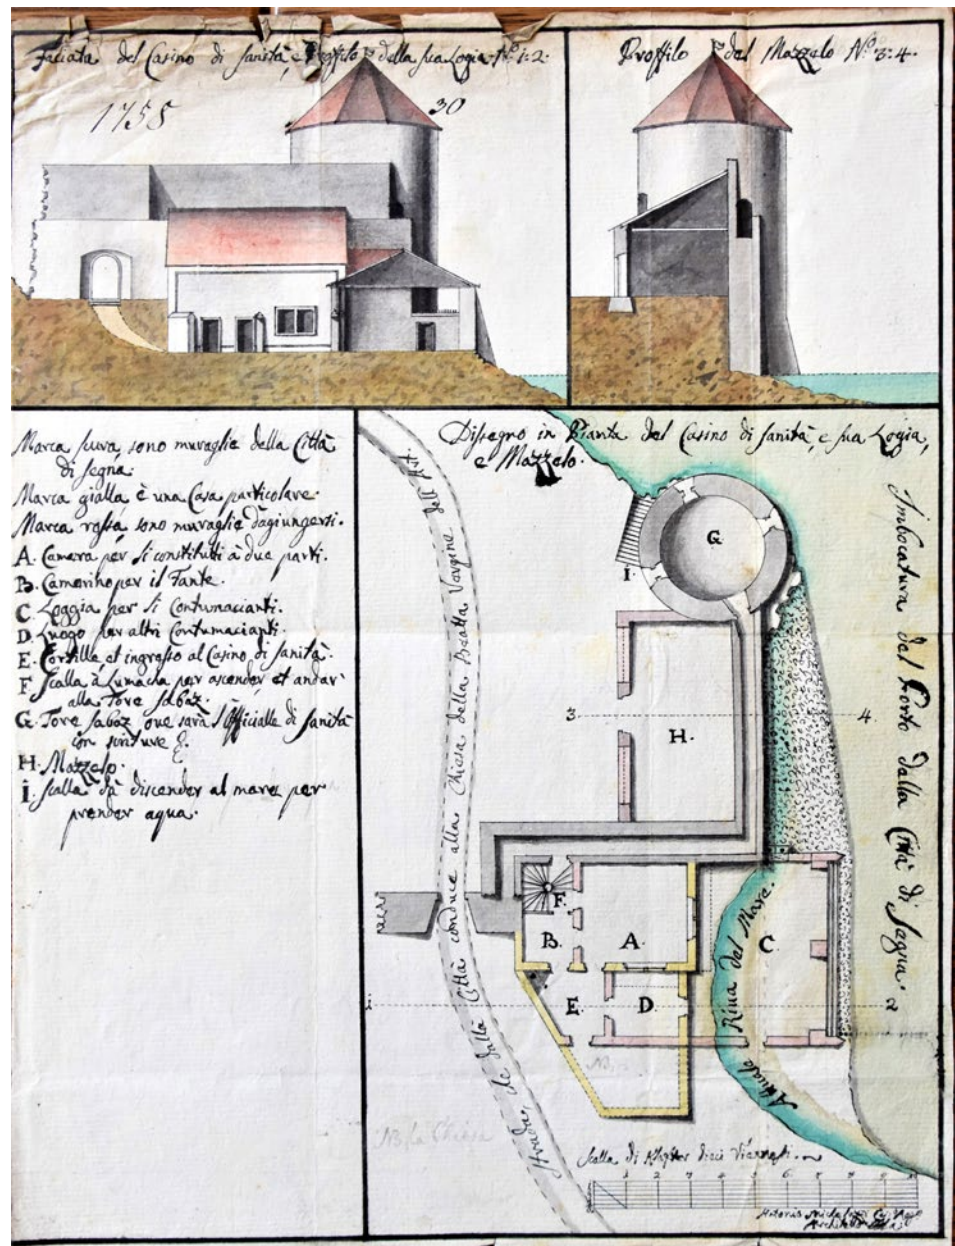 Faciata del Casino di Sanità, e Proffilo della sua Logia Nº 1:2.
Proffilo del Mazzelo Nº 3:4.
1758
30
Marca scura, sono muraglie della Città
di Segna.
Marca gialla è una Casa particolare.
Marca rossa, sono muraglie d'agiungersi.
A. Camera per li constituti à due parti.
B. Camerino per il Fante.
C Loggia per li Contumacianti.
D. Luogo per altri Contumacianti.
E. Cortille et ingresso al Casino di Sanità.
F. Scalla à Lumacha per ascender, et andar
alla Tore Sabaz
G. Tore Sabaz, ove sarà l'Officialle di Sanità
con scriture &.
H. Mazzelo.
I. Scalla dà discender al mare per
prender aqua.
Dissegno in Pianta del Casino di Sanità, e sua Logia,
e Mazzelo.
Imbocatura del Porto dalla Città di Segna.
Strada, che dalla Città conduce alla Chiesa della Beatta Vergine dell' Art.
G.
I.
3
4.
H.
F.
B.
A.
C.
E.
D.
1
2
Riva del Mare.
Attuale
NB.
NB la Chiesa
Scalla di Klafter dieci Viennesi.
1 2 3 4 5 6 7 8 9 10
Antonio
Architetto